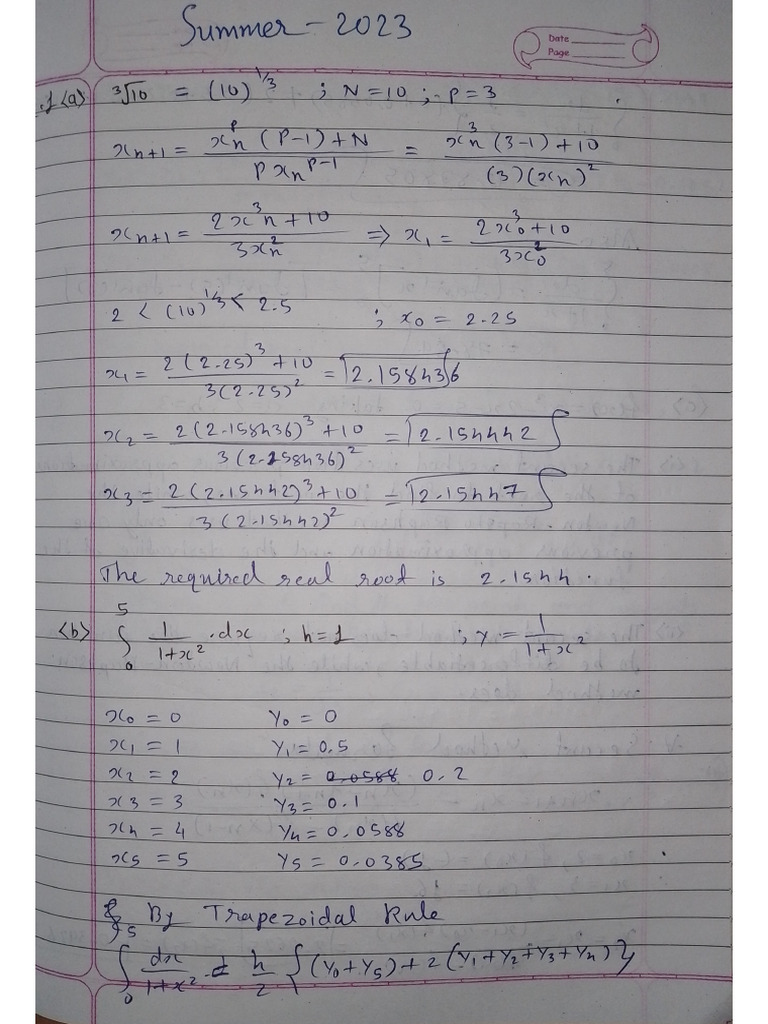 Summer - 2023
Date
Page
.1 (a) ³√10 = (10)^1/3 ; N = 10 ; P = 3
xₙ₊₁ = xₙ^P (P-1) + N / P xₙ^P-1 = xₙ³ (3-1) + 10 / (3)(xₙ)²
xₙ₊₁ = 2x³n + 10 / 3xₙ² ⇒ x₁ = 2x₀³ + 10 / 3x₀²
2 < (10)^1/3 < 2.5 ; x₀ = 2.25
x₁ = 2(2.25)³ + 10 / 3(2.25)² = 2.158436
x₂ = 2(2.158436)³ + 10 / 3(2.258436)² = 2.154442
x₃ = 2(2.15442)³ + 10 / 3(2.15442)² = 2.15447
The required real root is 2.1544.
(b) ∫₀⁵ 1/1+x² .dx ; h = 1 ; y = 1/1+x²
x₀ = 0 Y₀ = 0
x₁ = 1 Y₁ = 0.5
x₂ = 2 Y₂ = 0.0588 0.2
x₃ = 3 Y₃ = 0.1
x₄ = 4 Y₄ = 0.0588
x₅ = 5 Y₅ = 0.0385
By Trapezoidal Rule
∫₀⁵ dx/1+x² = h/2 {(Y₀+Y₅) + 2(Y₁+Y₂+Y₃+Y₄)}